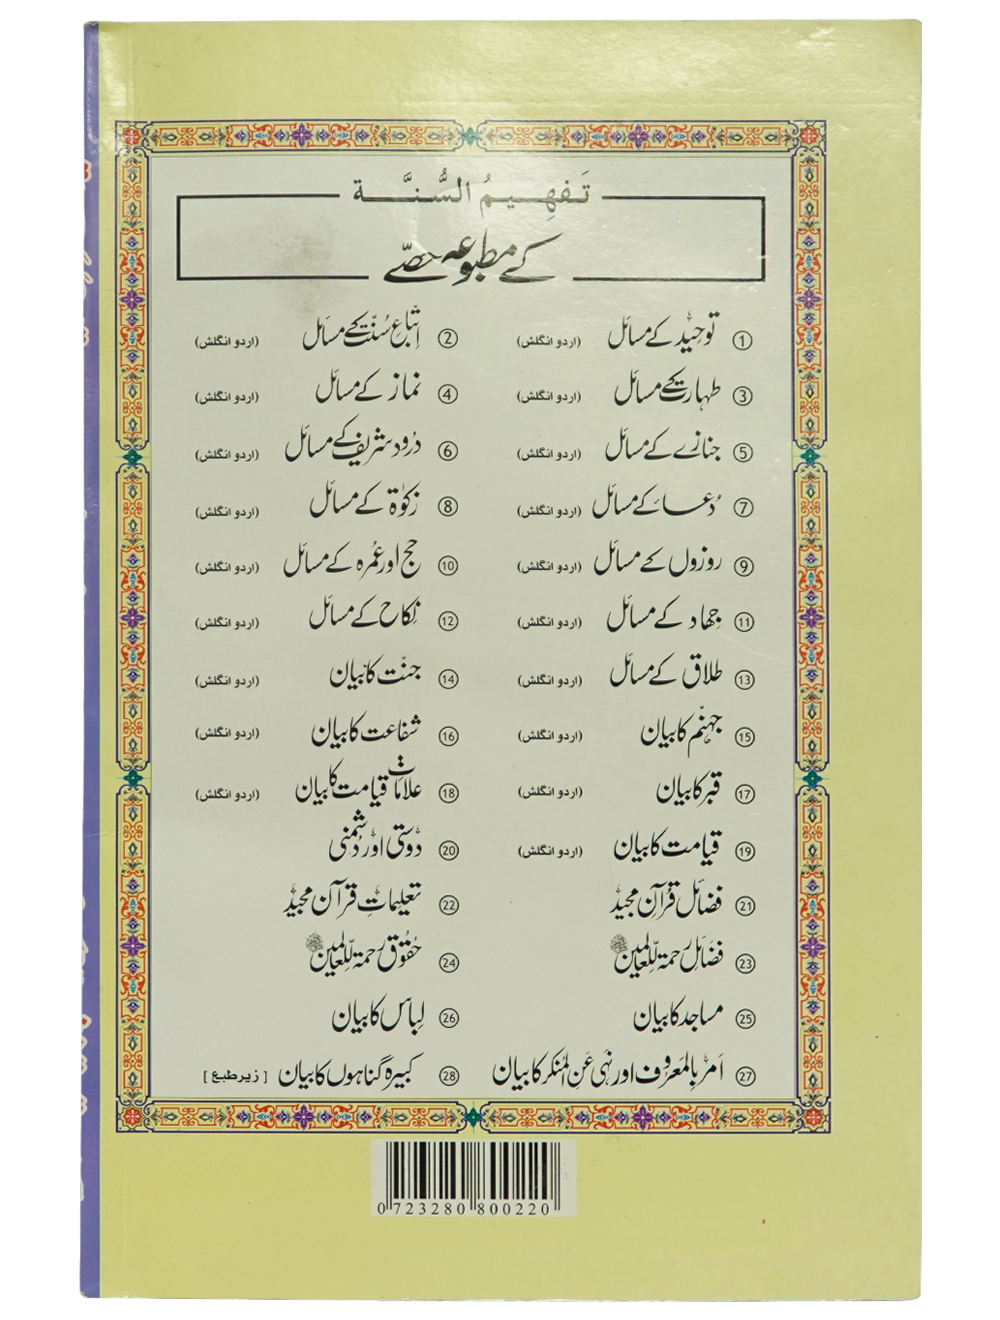 تَفهِیمُ السُّنَّة
کے مطبوعہ حصّے
① توحید کے مسائل (اردو انگلش) ② اتباعِ سُنّت کے مسائل (اردو انگلش)
③ طہارت کے مسائل (اردو انگلش) ④ نماز کے مسائل (اردو انگلش)
⑤ جنازے کے مسائل (اردو انگلش) ⑥ درود شریف کے مسائل (اردو انگلش)
⑦ دُعا کے مسائل (اردو انگلش) ⑧ زکوٰۃ کے مسائل (اردو انگلش)
⑨ روزوں کے مسائل (اردو انگلش) ⑩ حج اور عُمرہ کے مسائل (اردو انگلش)
⑪ جِہاد کے مسائل (اردو انگلش) ⑫ نِکاح کے مسائل (اردو انگلش)
⑬ طلاق کے مسائل (اردو انگلش) ⑭ جنّت کا بیان (اردو انگلش)
⑮ جہنّم کا بیان (اردو انگلش) ⑯ شفاعت کا بیان (اردو انگلش)
⑰ قبر کا بیان (اردو انگلش) ⑱ علاماتِ قیامت کا بیان (اردو انگلش)
⑲ قیامت کا بیان (اردو انگلش) ⑳ دوستی اور دُشمنی
㉑ فضائل قُرآن مجید ㉒ تعلیماتِ قرآن مجید
㉓ فضائل رحمۃ لِّلعالمین ﷺ ㉔ حقُوق رحمۃ لِّلعالمین ﷺ
㉕ مساجد کا بیان ㉖ لِباس کا بیان
㉗ اَمر بالمَعرُوف اور نہی عَنِ المُنکر کا بیان ㉘ کبیرہ گناہوں کا بیان [زیر طبع]
0 723280 800220